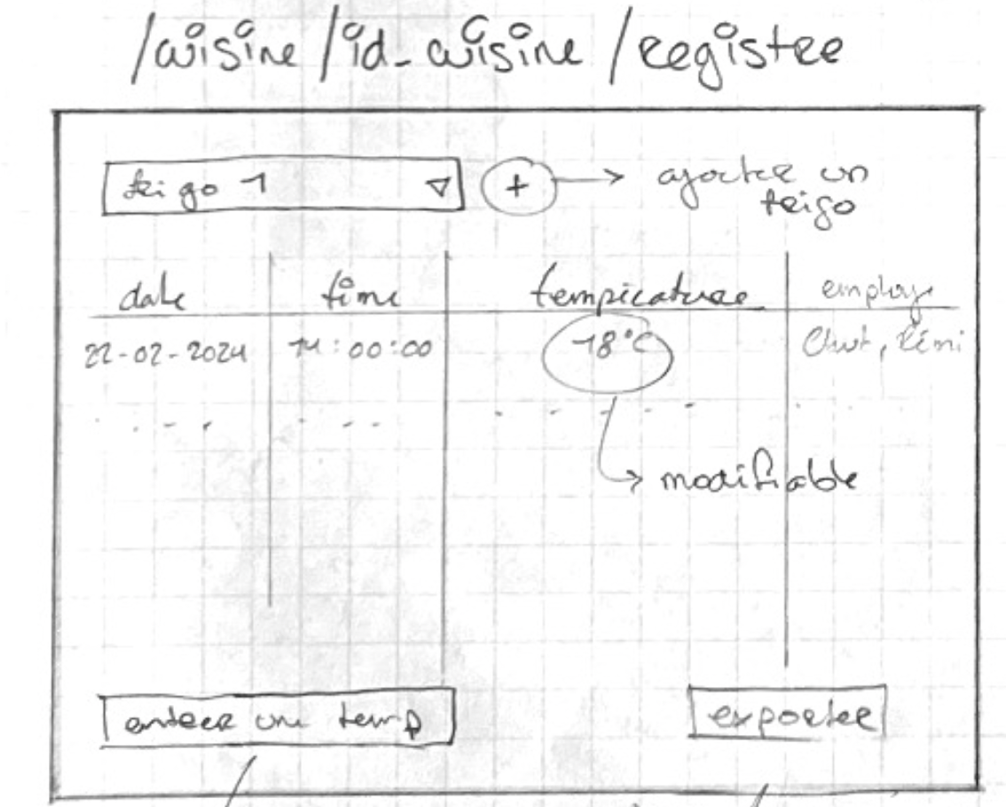 /cuisine/id_cuisine/registre
frigo 1 +
ajouter un
frigo
date time temperature employe
22-02-2024 14:00:00 18°C Rémi
modifiable
entrer une temp exporter